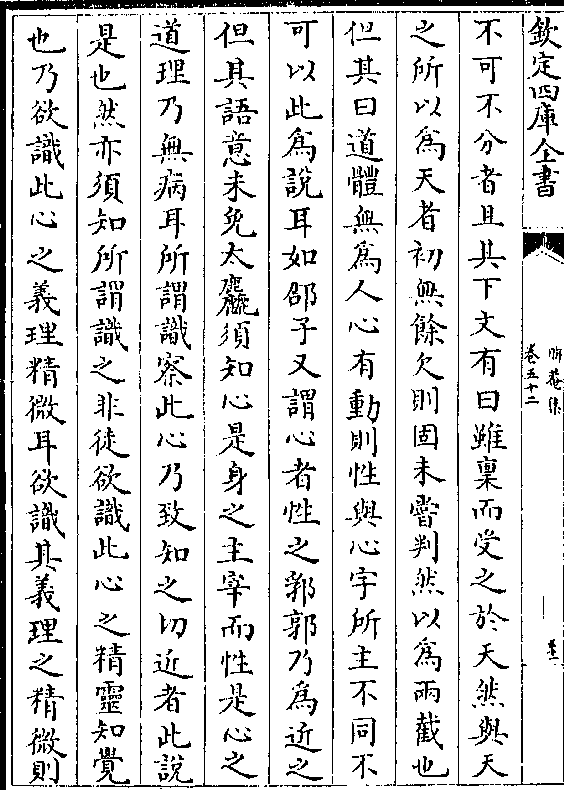 欽定四庫全書
晦菴集
卷五十二
不可不分者且其下文有曰雖稟而受之於天然與天
之所以為天者初無餘欠則固未嘗判然以為兩截也
但其曰道體無為人心有動則性與心字所主不同不
可以此為說耳如邵子又謂心者性之郛郭乃為近之
但其語意未免太麤須知心是身之主宰而性是心之
道理乃無病耳所謂識察此心乃致知之切近者此說
是也然亦須知所謂識之非徒欲識此心之精靈知覺
也乃欲識此心之義理精微耳欲識其義理之精微則